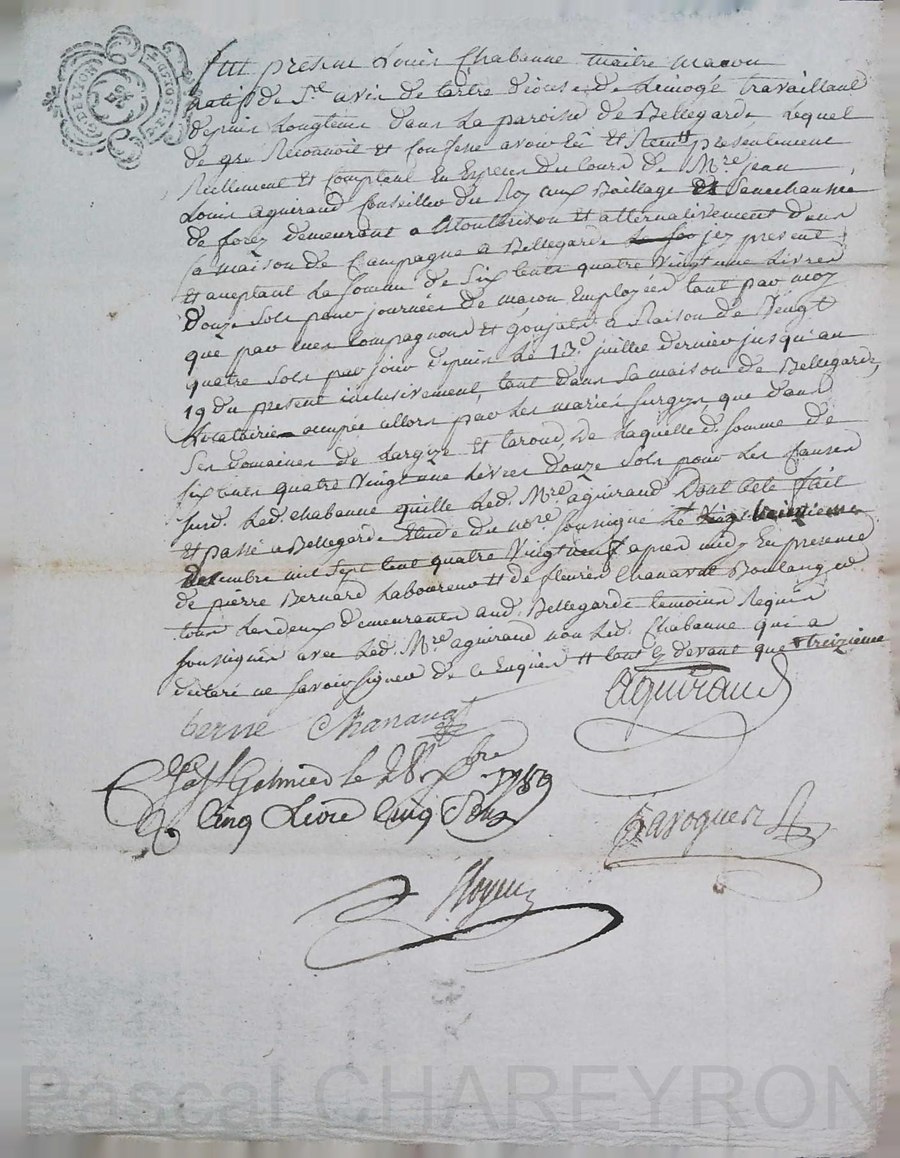 G. D. LYON
Fut présent Louis Chabanne maitre macon
natif de St. avis de tartre diocese de Limoge travaillant
depuis Longtems dans La paroisse de Bellegarde Lequel
de gré Reconnoit et Confesse avoir eû et Reçu présentement
Reellement et Comptant En Especes du Cours de Mre. jean
Louis aguiraud Conseiller du Roy aux Baillage et Senechaussée
de forez demeurant a Montbrison et alternativement dans
sa maison de Campagne a Bellegarde jcy present
et aceptant La somme de Six Cents quatre Vingt une Livres
Douze sols pour journées de macon Employees tant par moy
que par mes Compagnons et goujats a Raison de Vingt
quatre sols par jour depuis Le 13e. juillet dernier jusqu'au
19 du present inclusivement, tant dans sa maison de Bellegarde,
Locatairie occupée allors par Les mariés surgis, que dans
Ses domaines de Largize et taroud de Laquelle d. somme de
six Cents quatre Vingt une Livres douze sols pour Les Causes
susd. Led. Chabanne quitte Led. Mre. aguiraud Dont acte fait
et passé a Bellegarde Etude du nore. soussigné Le
decembre mil sept Cent quatre Vingt neuf apres midy En presence
de pierre Bernard Laboureur et de fleury Chanavat Boulanger
tous Les deux demeurants aud. Bellegarde temoins Requis
soussignés avec Led. Mre. aguiraud non Led. Chabanne qui a
declaré ne savoir signer de ce Enquis et tout cy devant que treizieme
berne Chanavat
Aguiraud
St Galmier le 28 Xbre 1789
Cinq Livre Cinq Sous
Pascal CHAREYRON